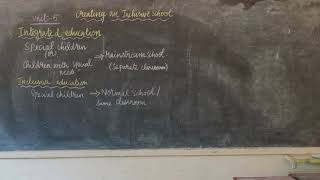 Unit:-5 Creating an Inclusive school
Integrated education
Special children
(or) → Mainstream school
Children with special (Separate classroom)
needs
Inclusive education
Special children → Normal school/
same classroom